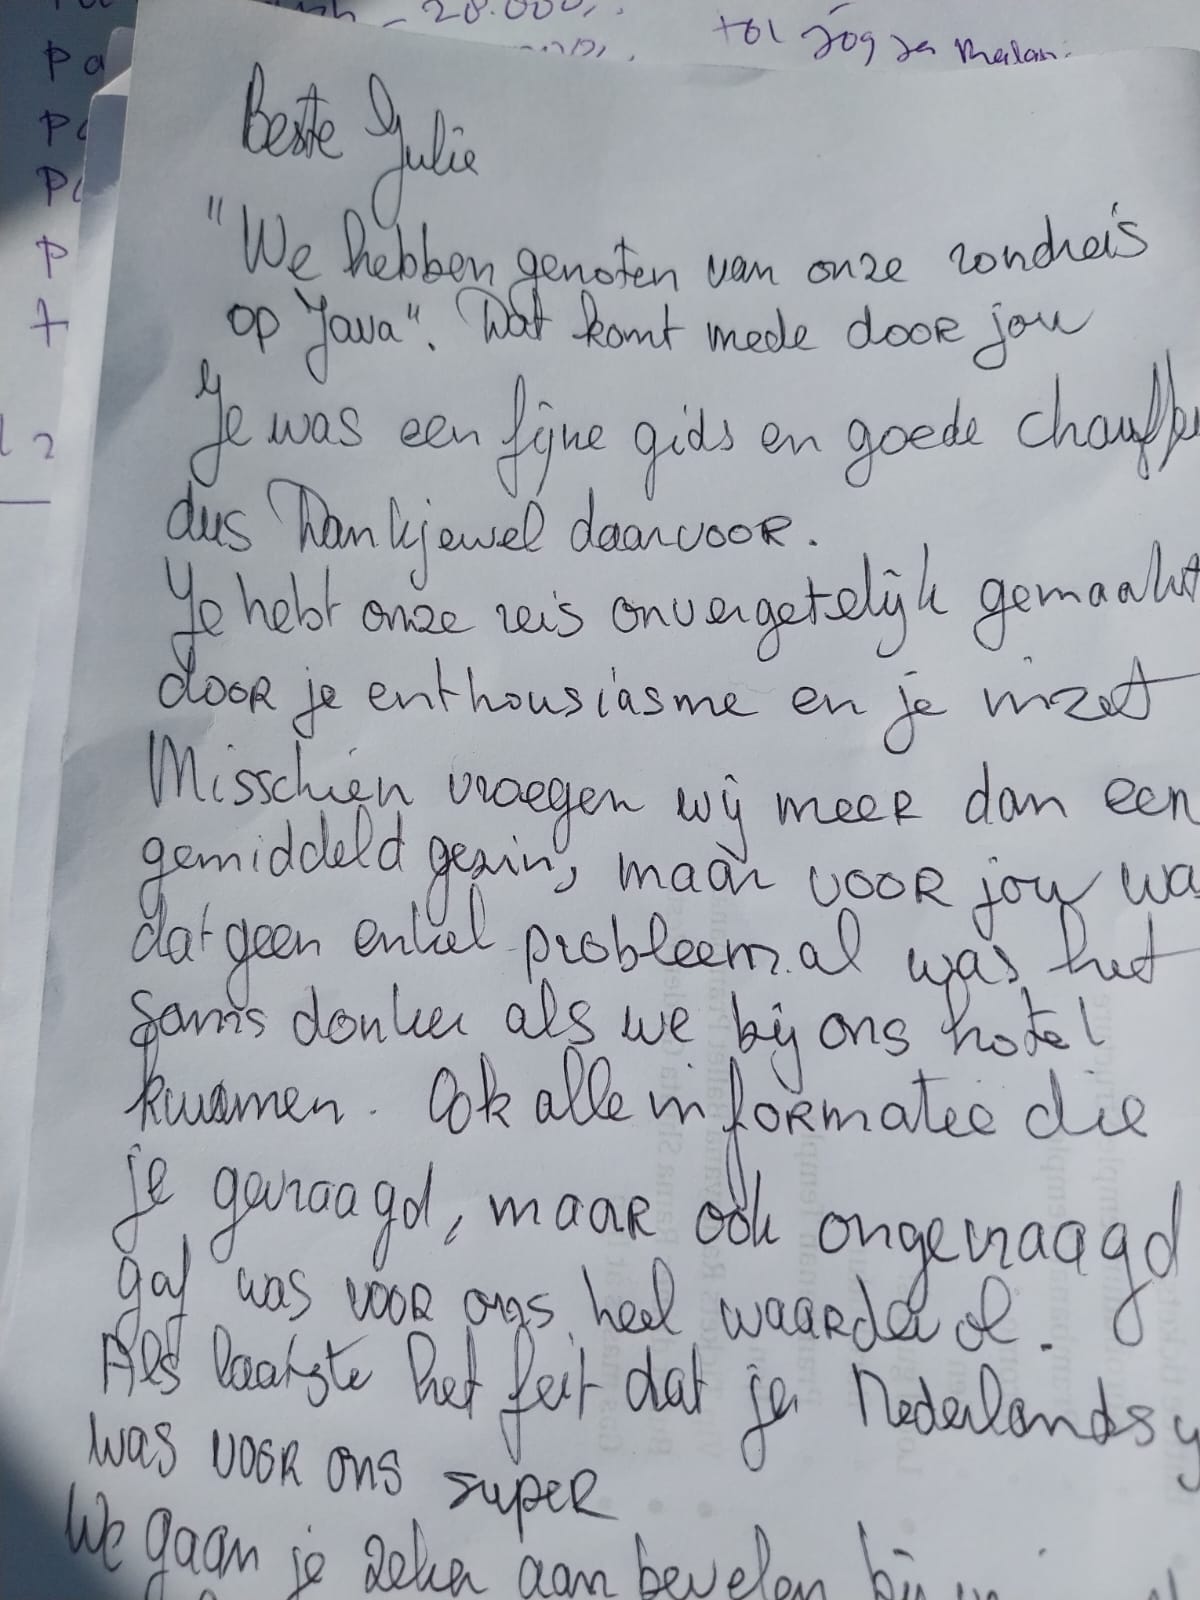 28.000,
tol Jogja
Pa
P
P
P
+
2
Beste Julie
"We hebben genoten van onze rondreis
op Java". Dat komt mede door jou
Je was een fijne gids en goede chauffe
dus Dankjewel daarvoor.
Je hebt onze reis onvergetelijk gemaakt
door je enthousiasme en je inzet
Misschien vroegen wij meer dan een
gemiddeld gezin, maar voor jou wa
dat geen enkel probleem. al was het
soms donker als we bij ons hotel
kwamen. Ook alle informatie die
je gevraagd, maar ook ongevraagd
gaf was voor ons heel waardevol.
Als laatste het feit dat je Nederlands
was voor ons super
We gaan je zeker aan bevelen bij